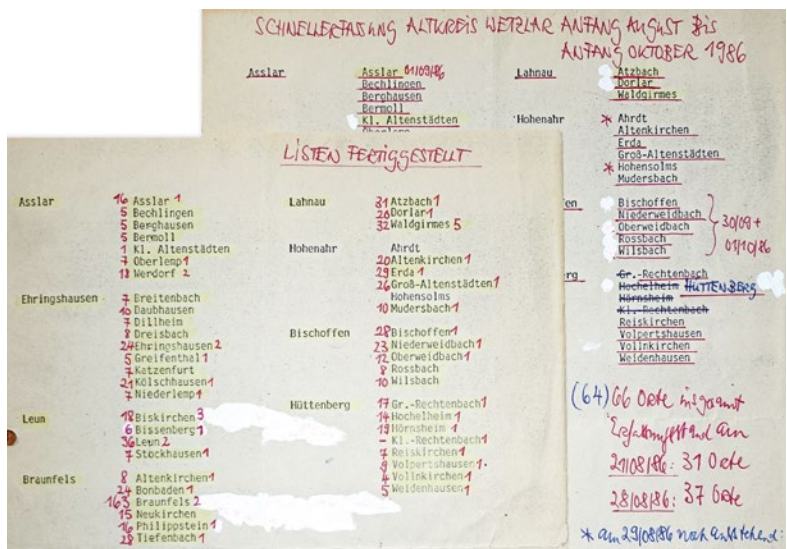 SCHNELLERFASSUNG ALTKREIS WETZLAR ANFANG AUGUST BIS
ANFANG OKTOBER 1986
Asslar
Asslar 01/09/86
Bechlingen
Berghausen
Bermoll
Kl. Altenstädten
Lahnau
Atzbach
Dorlar
Waldgirmes
Hohenahr
* Ahrdt
Altenkirchen
Erda
Groß-Altenstädten
* Hohensolms
Mudersbach
Bischoffen
Niederweidbach
Oberweidbach
Rossbach
Wilsbach
30/09 +
01/10/86
Gr.-Rechtenbach
Hochelheim HÜTTENBERG
Hörnsheim
Kl.-Rechtenbach
Reiskirchen
Volpertshausen
Vollnkirchen
Weidenhausen
(64) 66 Orte insgesamt
Erfassungsstand am
21/08/86: 31 Orte
28/08/86: 37 Orte
* am 29/08/86 noch ausstehend:
LISTEN FERTIGGESTELLT
Asslar
16 Asslar 1
5 Bechlingen
5 Berghausen
5 Bermoll
1 Kl. Altenstädten
7 Oberlemp 1
13 Werdorf 2
Ehringshausen
7 Breitenbach
10 Daubhausen
7 Dillheim
8 Dreisbach
24 Ehringshausen 2
5 Greifenthal 1
7 Katzenfurt
21 Kölschhausen 1
7 Niederlemp 1
Leun
18 Biskirchen 3
6 Bissenberg 1
36 Leun 2
7 Stockhausen 1
Braunfels
8 Altenkirchen 1
24 Bonbaden 1
163 Braunfels 2
15 Neukirchen
16 Philippstein 1
28 Tiefenbach 1
Lahnau
31 Atzbach 1
20 Dorlar 1
32 Waldgirmes 5
Hohenahr
Ahrdt
20 Altenkirchen 1
29 Erda 1
26 Groß-Altenstädten 1
Hohensolms
10 Mudersbach 1
Bischoffen
28 Bischoffen 1
23 Niederweidbach 1
12 Oberweidbach 1
8 Rossbach
10 Wilsbach
Hüttenberg
17 Gr.-Rechtenbach 1
14 Hochelheim 1
19 Hörnsheim 1
- Kl.-Rechtenbach 1
7 Reiskirchen 1
9 Volpertshausen 1
4 Vollnkirchen 1
5 Weidenhausen 1